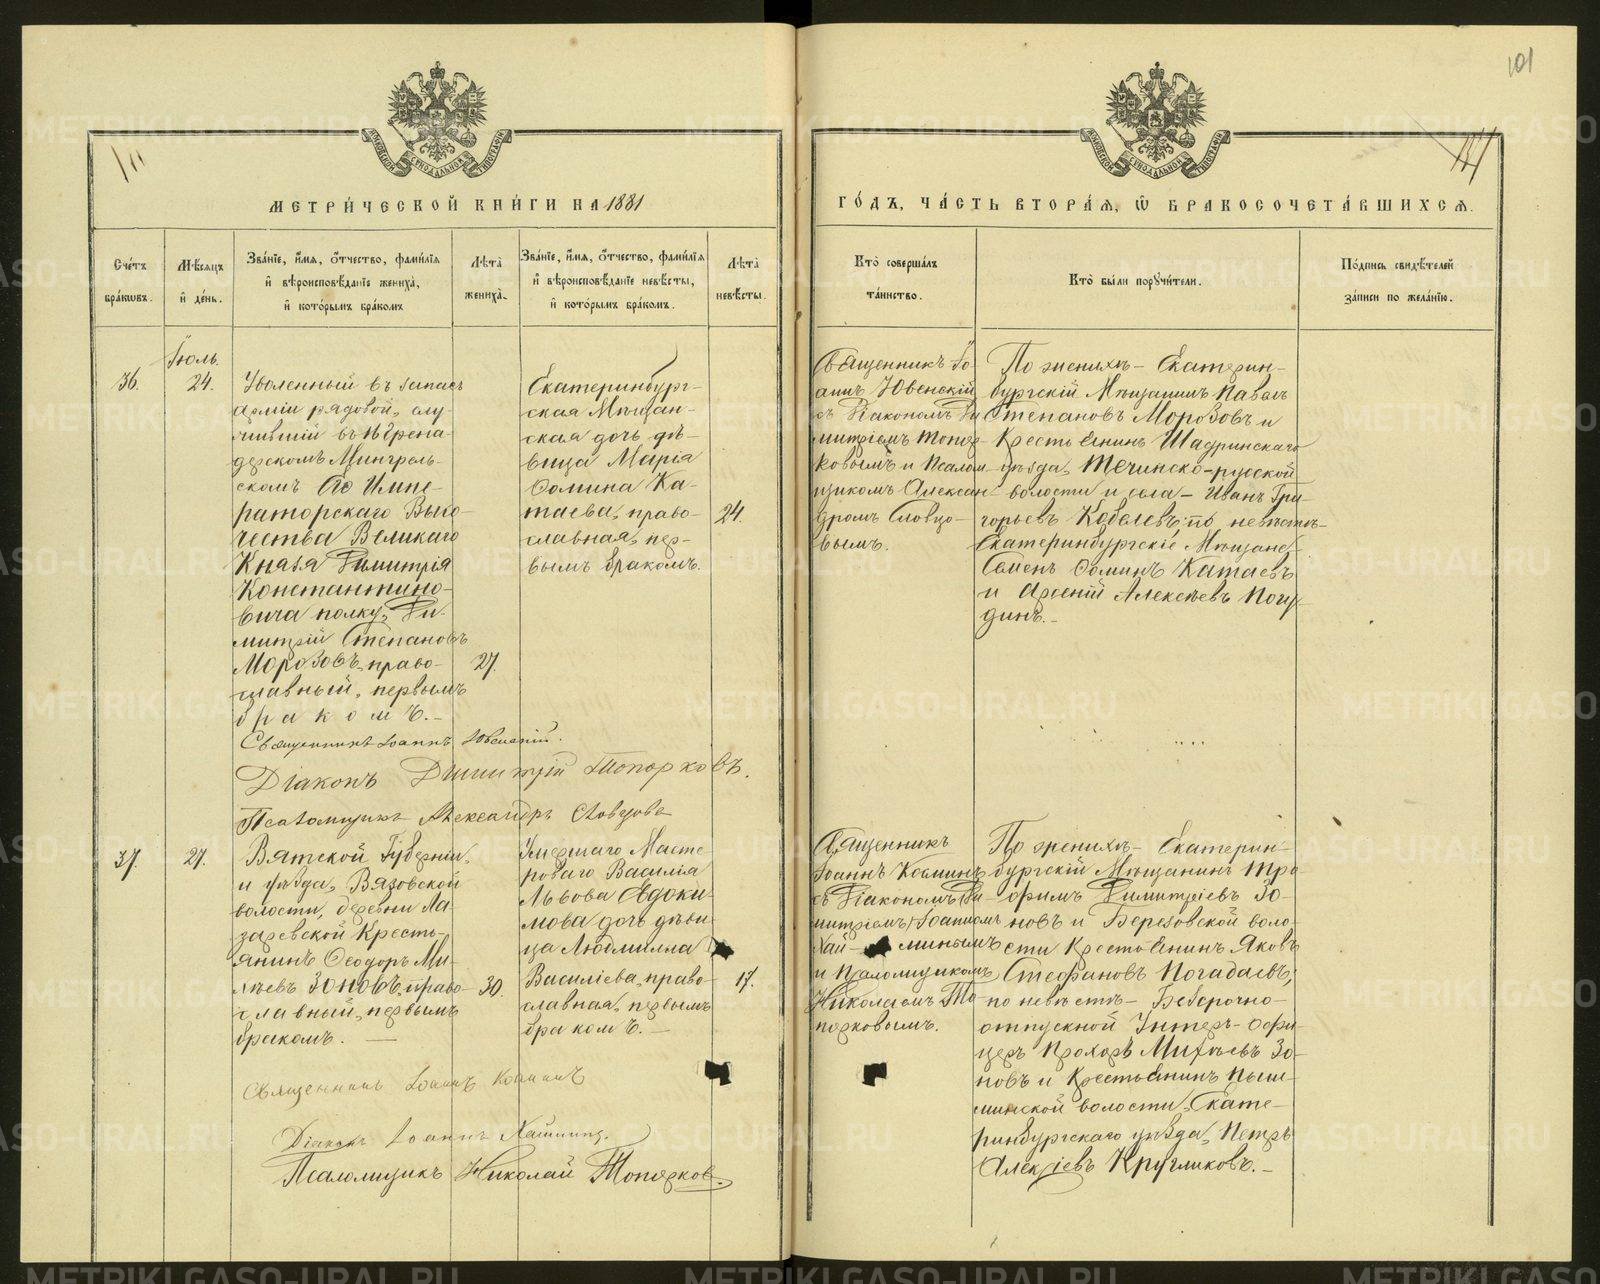 101
МОСКОВСКОЙ СѴНОДАЛЬНОЙ ТИПОГРАФІИ
МОСКОВСКОЙ СѴНОДАЛЬНОЙ ТИПОГРАФІИ
МЕТРИ́ЧЕСКОЙ КНИ́ГИ НА 1881
ГО́ДЪ, ЧА́СТЬ ВТОРА́Я, Ѡ҆ БРАКОСОЧЕТА́ВШИХСЯ.
Сче́тъ
бра́кѡвъ.
Мѣ́сяцъ
и҆ де́нь.
Зва́нїе, и҆́мя, ѻ҆́тчество, фами́лїя
и҆ вѣроисповѣ́данїе жениха̀,
и҆ кото́рымъ бра́комъ
Лѣ́та
жениха̀.
Зва́нїе, и҆́мя, ѻ҆́тчество, фами́лїя
и҆ вѣроисповѣ́данїе невѣ́сты,
и҆ кото́рымъ бра́комъ.
Лѣ́та
невѣ́сты.
Кто̀ соверша́лъ
та́инство.
Кто̀ бы́ли порꙋчи́тели.
По́дпись свидѣ́телей
за́писи по жела́нїю.
36.
Іюль.
24.
Уволенный въ запасъ
арміи рядовой, слу-
жившій въ 16 Грена-
дерскомъ Мингрель-
скомъ Его Импе-
раторскаго Высо-
чества Великаго
Князя Димитрія
Константино-
вича полку, Ди-
митрій Степановъ
Морозовъ, право-
славный, первымъ
бракомъ.-
27.
Екатеринбург-
ская Мѣщан-
ская дочь дѣ-
вица Марія
Сомина Ка-
таева, право-
славная, пер-
вымъ бракомъ.
24.
Священникъ Іо-
аннъ Ювенскій
съ Діакономъ Ди-
митріемъ Топор-
ковымъ и Псалом-
щикомъ Алексан-
дромъ Словцо-
вымъ.
По женихѣ - Екатерин-
бургскій Мѣщанинъ Павелъ
Степановъ Морозовъ и
Крестьянинъ Шадринскаго
уѣзда, Теченско-русской
волости и села - Иванъ Гри-
горьевъ Кобелевъ; по невѣстѣ-
Екатеринбургскіе Мѣщане-
Семенъ Соминъ Катаевъ
и Арсеній Алексѣевъ Погу-
динъ.-
Священникъ Іоаннъ Ювенскій.
Діаконъ Димитрій Топорковъ.
Псаломщикъ Александръ Словцовъ
37.
27.
Вятской Губерніи,
и уѣзда, Вязовской
волости, деревни Ла-
заревской Кресть-
янинъ Ѳеодоръ Ми-
хѣевъ Зоновъ, право-
славный, первымъ
бракомъ. -
30.
Умершаго Масте-
роваго Василія
Львова Евдоки-
мова дочь дѣви-
ца Людмилла
Васильева, право-
славная, первымъ
бракомъ. -
17.
Священникъ
Іоаннъ Косминъ
съ Діакономъ (Ди-
митріемъ) Іоанномъ
Хай- минымъ
и Псаломщикомъ
Николаемъ То-
порковымъ.
По женихѣ - Екатерин-
бургскій Мѣщанинъ Тро-
фимъ Димитріевъ Зо-
новъ и Березовской воло-
сти Крестьянинъ Яковъ
Стефановъ Погадаевъ;
по невѣстѣ - Безсрочно-
отпускной Унтеръ-офи-
церъ Прохоръ Михѣевъ Зо-
новъ и Крестьянинъ Пыш-
минской волости, Екате-
ринбургскаго уѣзда, Петръ
Алексіевъ Кругликовъ.-
Священникъ Іоаннъ Косминъ
Діаконъ Іоаннъ Хайминъ.
Псаломщикъ Николай Топорковъ.
METRIKI.GASO-URAL.RU